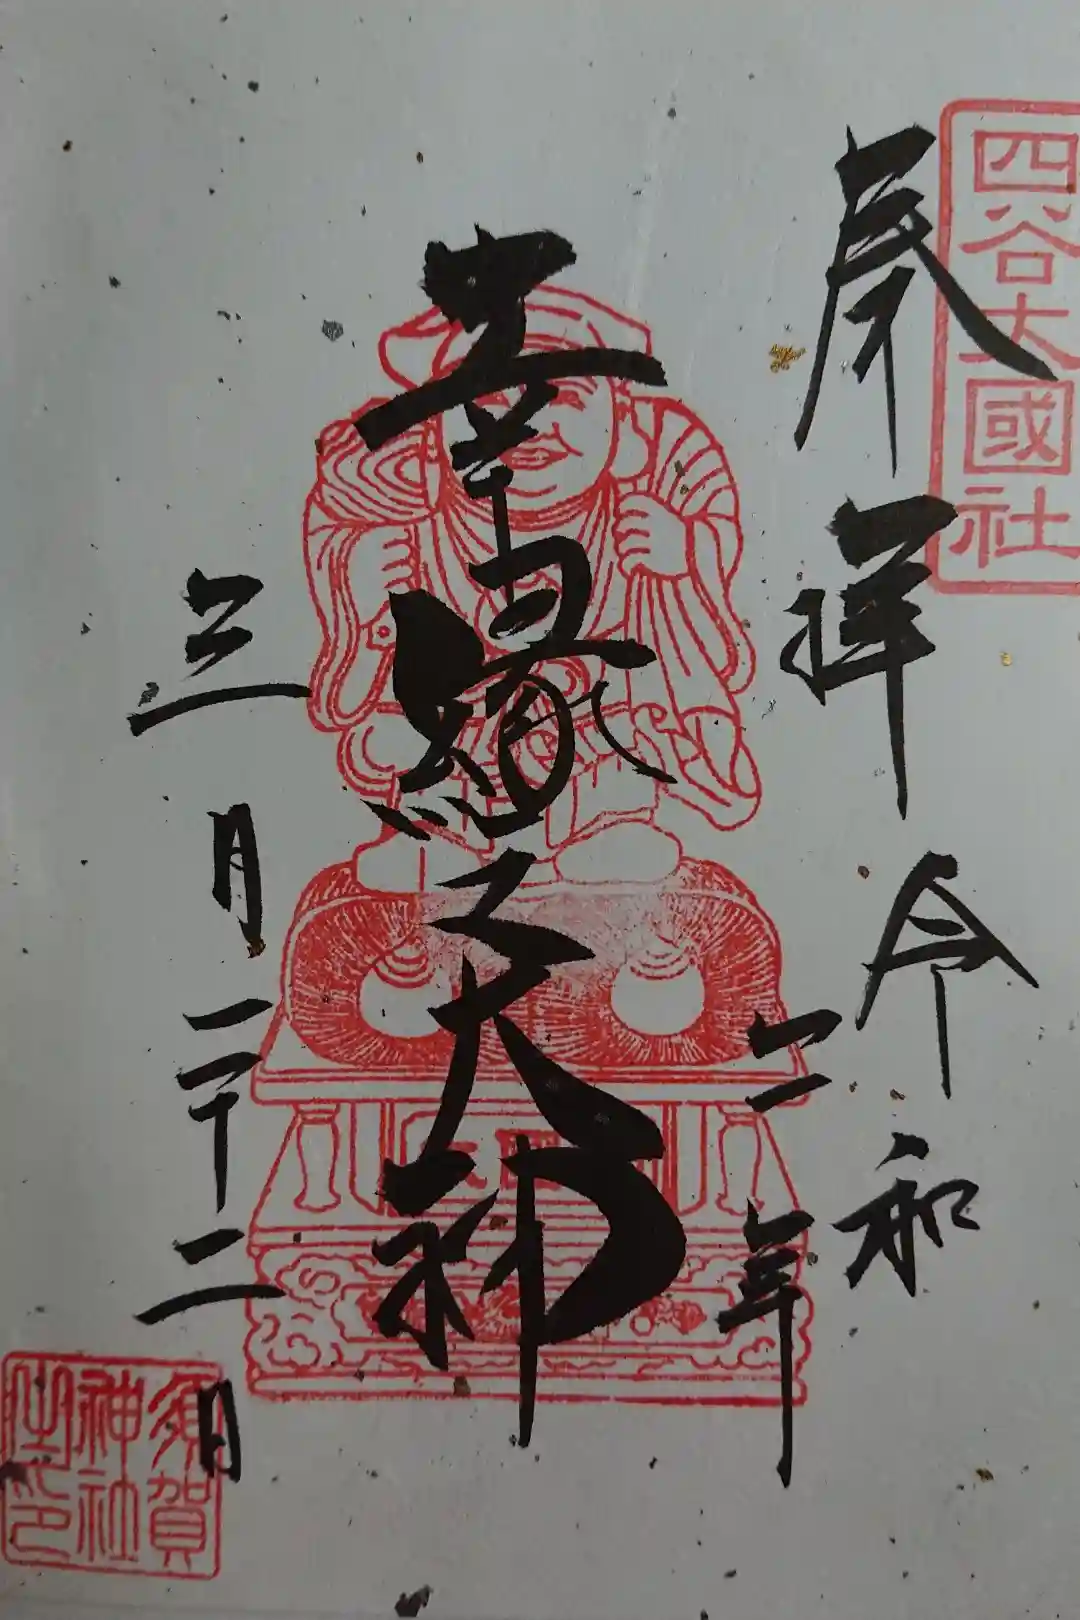 四谷大國社
奉拝 令和
二年
縁之大神
三月二十二日
須賀
神社
之印